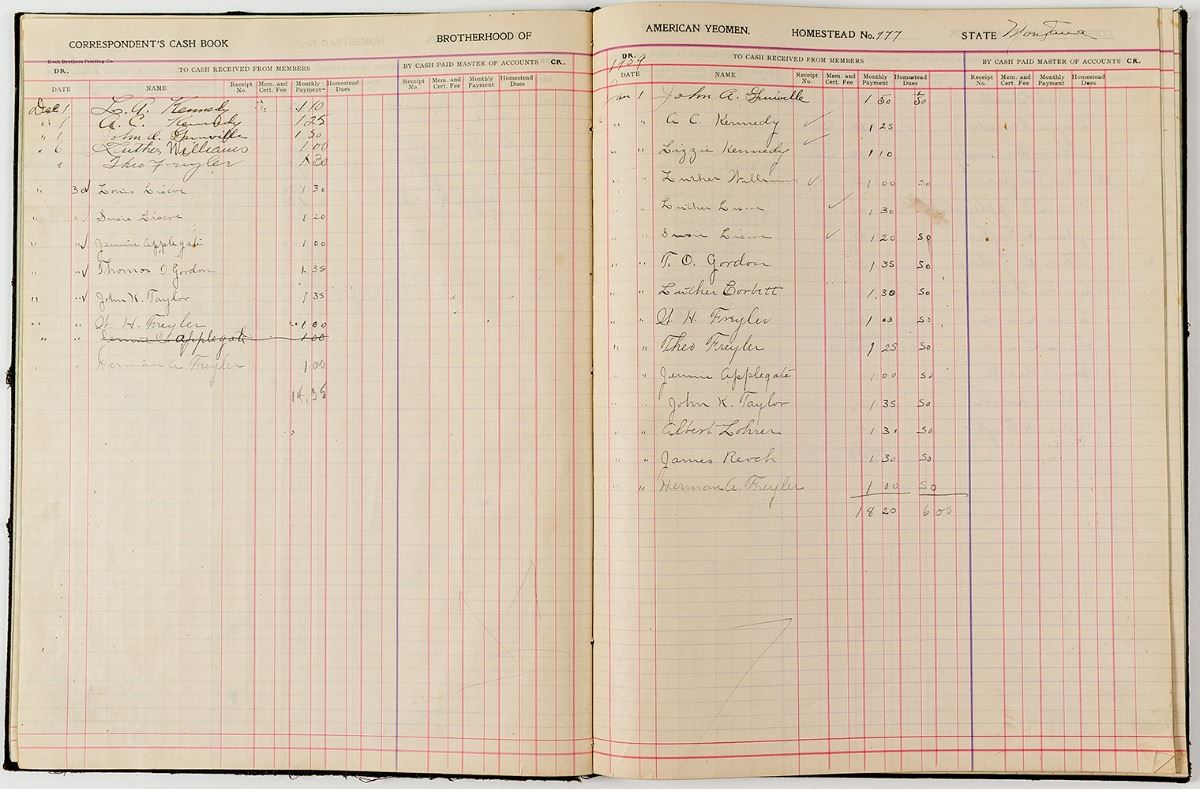 CORRESPONDENT'S CASH BOOK BROTHERHOOD OF
Koch Brothers Printing Co.
DR. TO CASH RECEIVED FROM MEMBERS BY CASH PAID MASTER OF ACCOUNTS CR.
DATE NAME Receipt No. Mem. and Cert. Fee Monthly Payment Homestead Dues Receipt No. Mem. and Cert. Fee Monthly Payment Homestead Dues
Dec 1 L. A. Kennedy 1 10
" 1 A. C. Kennedy 1 25
" 1 John A. 1 50
" 6 Luther Williams 1 00
" Theo Freyler 1 30
" 30 Louis Liscom 1 30
" " Susie Liscom 1 20
" " Jennie Applegate 1 00
" " Thomas O Gordon 1 35
" " John K. Taylor 1 35
" " H. Freyler 1 00
" " Jennie C. Applegate 1 00
" " Herman A Freyler 1 00
14,35
AMERICAN YEOMEN. HOMESTEAD No. 777 STATE Montana
DR. TO CASH RECEIVED FROM MEMBERS BY CASH PAID MASTER OF ACCOUNTS CR.
DATE NAME Receipt No. Mem. and Cert. Fee Monthly Payment Homestead Dues Receipt No. Mem. and Cert. Fee Monthly Payment Homestead Dues
Jan 1 John A. 1 50 50
" " A C Kennedy ✓ 1 25
" " Lizzie Kennedy ✓ 1 10
" " Luther Williams ✓ 1 00 50
" " Luther ✓ 1 30
" " Susie Liscom ✓ 1 20 50
" " T. O. Gordon 1 35 50
" " Luther Corbett 1.30 50
" " H. Freyler 1 00 50
" " Theo Freyler 1 25 50
" " Jennie Applegate 1 00 50
" " John K. Taylor 1 35 50
" " Albert Lohrer 1 30 50
" " James Reoch 1 30 50
" " Herman A. Freyler 1 00 50
18 20 6 00